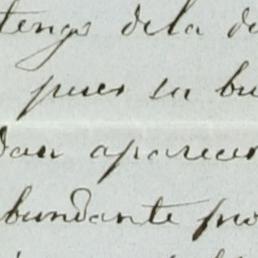 tengo dela d
pues su bu
dan aparecer
bundante